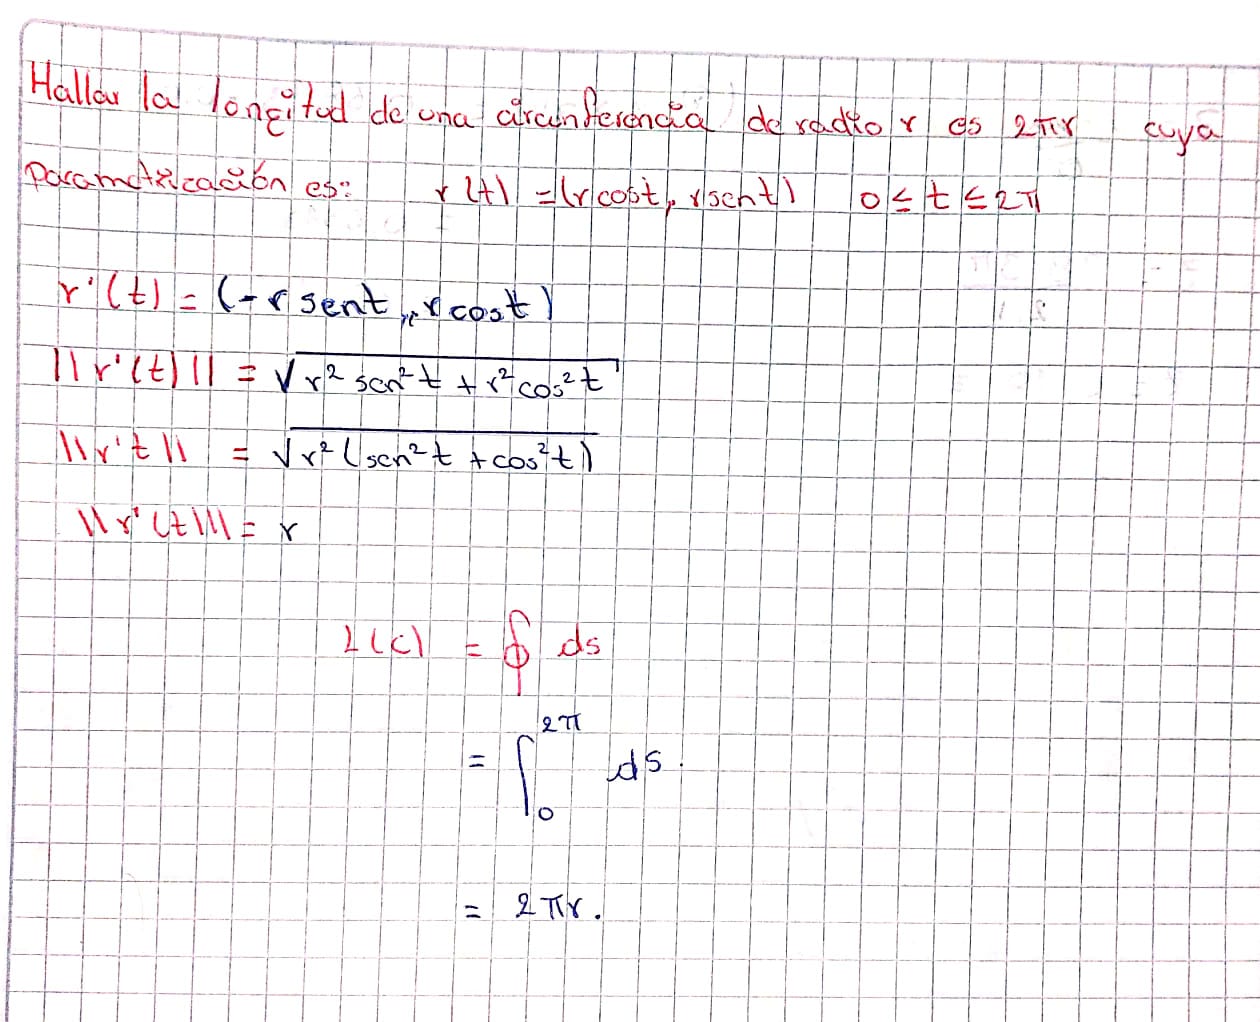 Hallar la longitud de una circunferencia de radio r es 2πr cuya
Parametrización es: r(t) = (r cost, r sent) 0 ≤ t ≤ 2π
r'(t) = (-r sent, r cost)
||r'(t)|| = √r² sen²t + r² cos²t
||r't|| = √r² (sen²t + cos²t)
||r'(t)|| = r
L(c) = ∮ ds
= ∫₀²π ds.
= 2πr.